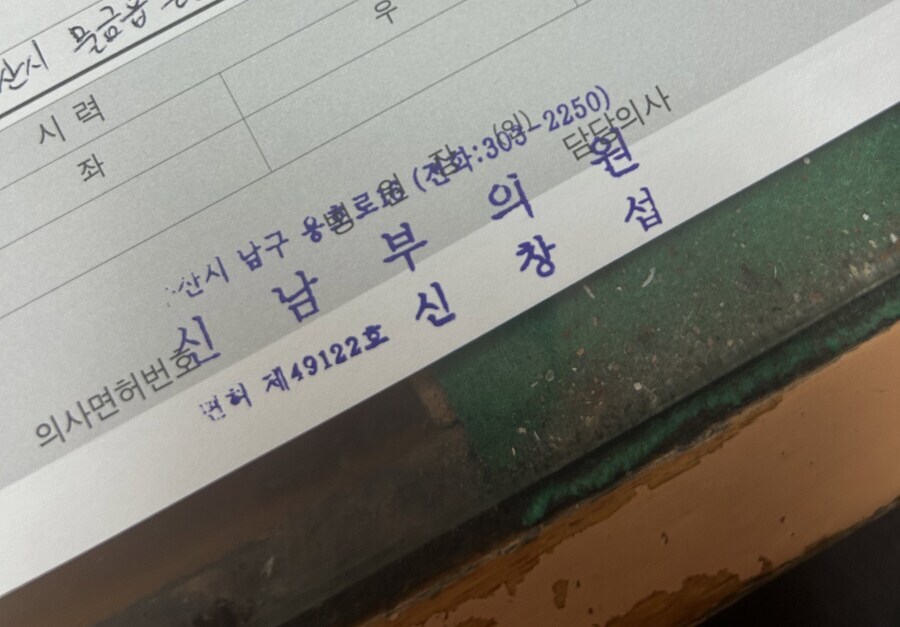 산시 물금읍
우
시 력
좌
담당의사
산시 남구 용호로 (전화:303-2250)
신 남 부 의 원
의사면허번호
면허 제49122호 신 창 섭